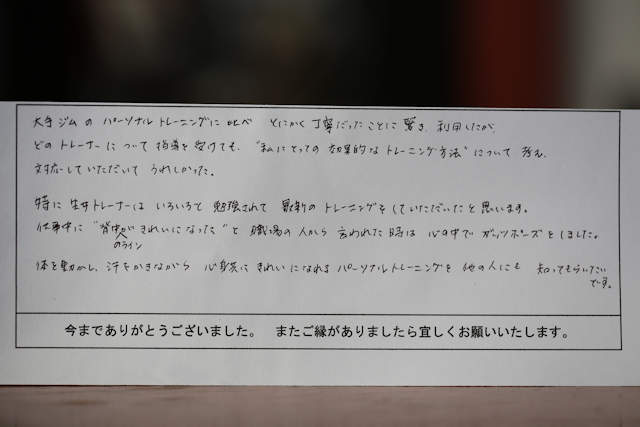 大手ジムの パーソナルトレーニングに比べ とにかく丁寧だったことに驚き、利用したが、
どのトレーナーについて指導を受けても、“私にとっての効果的なトレーニング方法”について考え、
対応していただいて うれしかった。
特に生井トレーナーは いろいろと勉強されて 最新のトレーニングをしていただいたと思います。
仕事中に“背中がきれいになった”と 職場の人から言われた時は 心の中でガッツポーズをしました。
のライン
体を動かし、汗をかきながら 心身共にきれいになれるパーソナルトレーニングを 他の人にも 知ってもらいたい
です。
今までありがとうございました。 またご縁がありましたら宜しくお願いいたします。